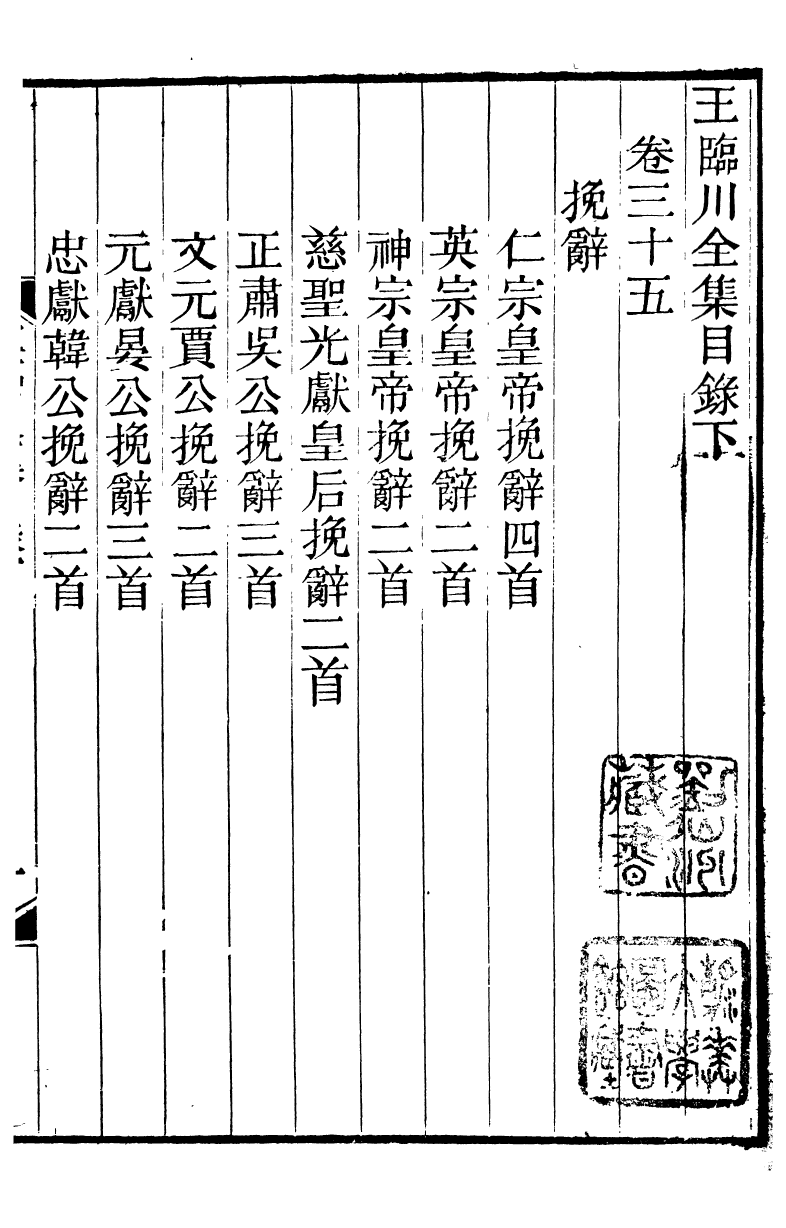 王臨川全集目錄下
卷三十五
挽辭
仁宗皇帝挽辭四首
英宗皇帝挽辭二首
神宗皇帝挽辭二首
慈聖光獻皇后挽辭二首
正肅吳公挽辭三首
文元賈公挽辭二首
元獻晏公挽辭三首
忠獻韓公挽辭二首
藏書
燕京大學圖書館藏